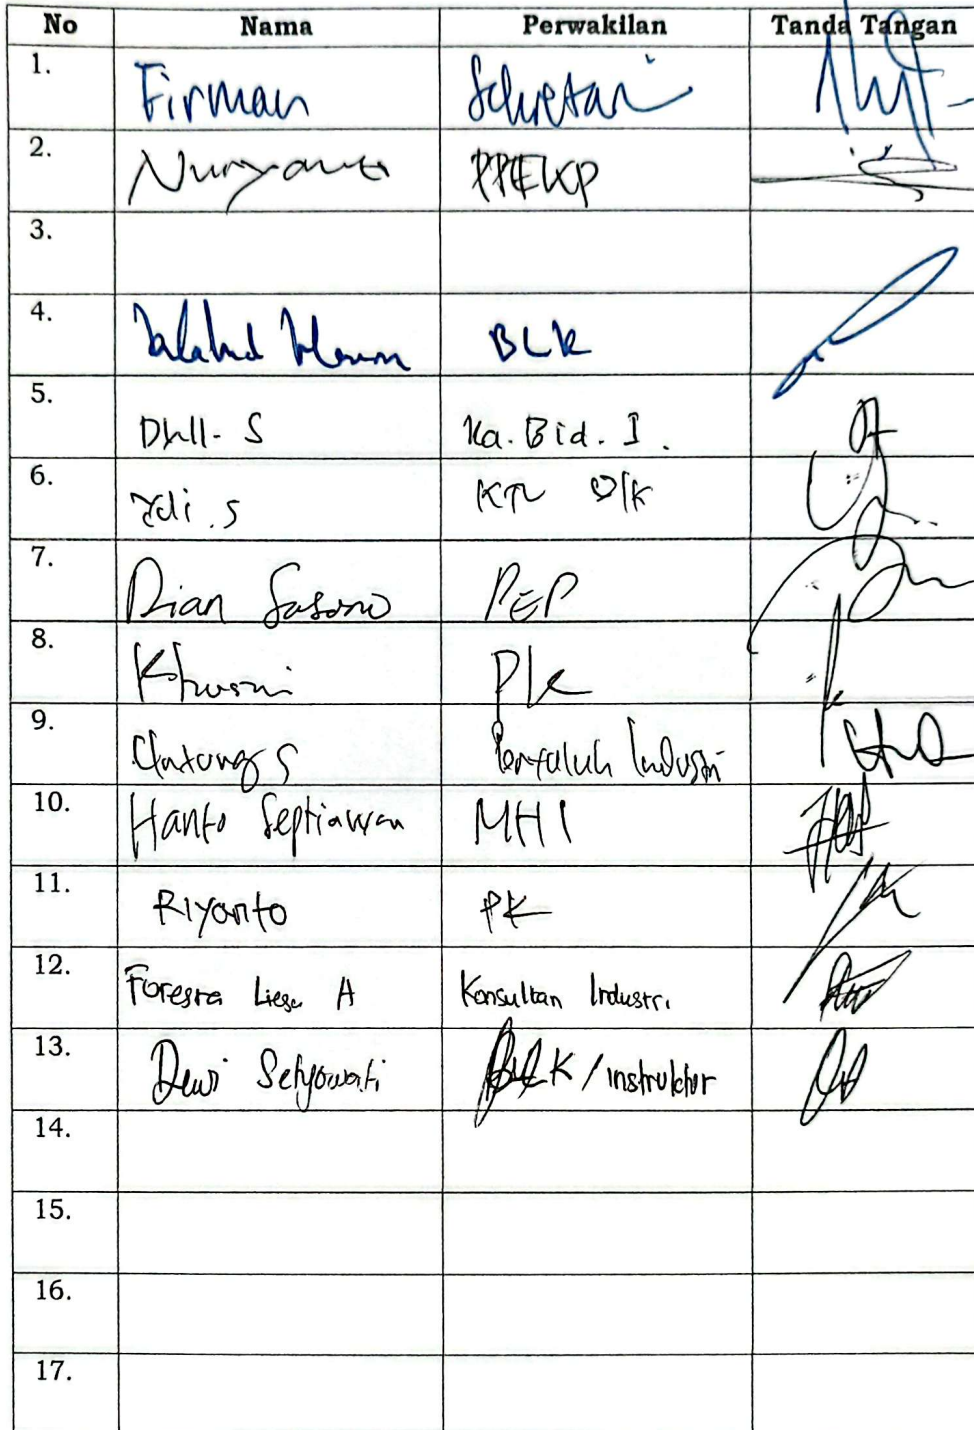 No Nama Perwakilan Tanda Tangan
1. Firman Sekretari
2. Nuryanti
3.
4. BLK
5. S Ka. Bid. I.
6. Edi. S
7. Dian Sasono PEP
8. Khusni PK
9. Untung S Penyuluh Industri
10. Hanto Septiawan MHI
11. Riyanto PK
12. Foresta Liega A Konsultan Industri
13. Dewi Setyowati BLK / instruktur
14.
15.
16.
17.